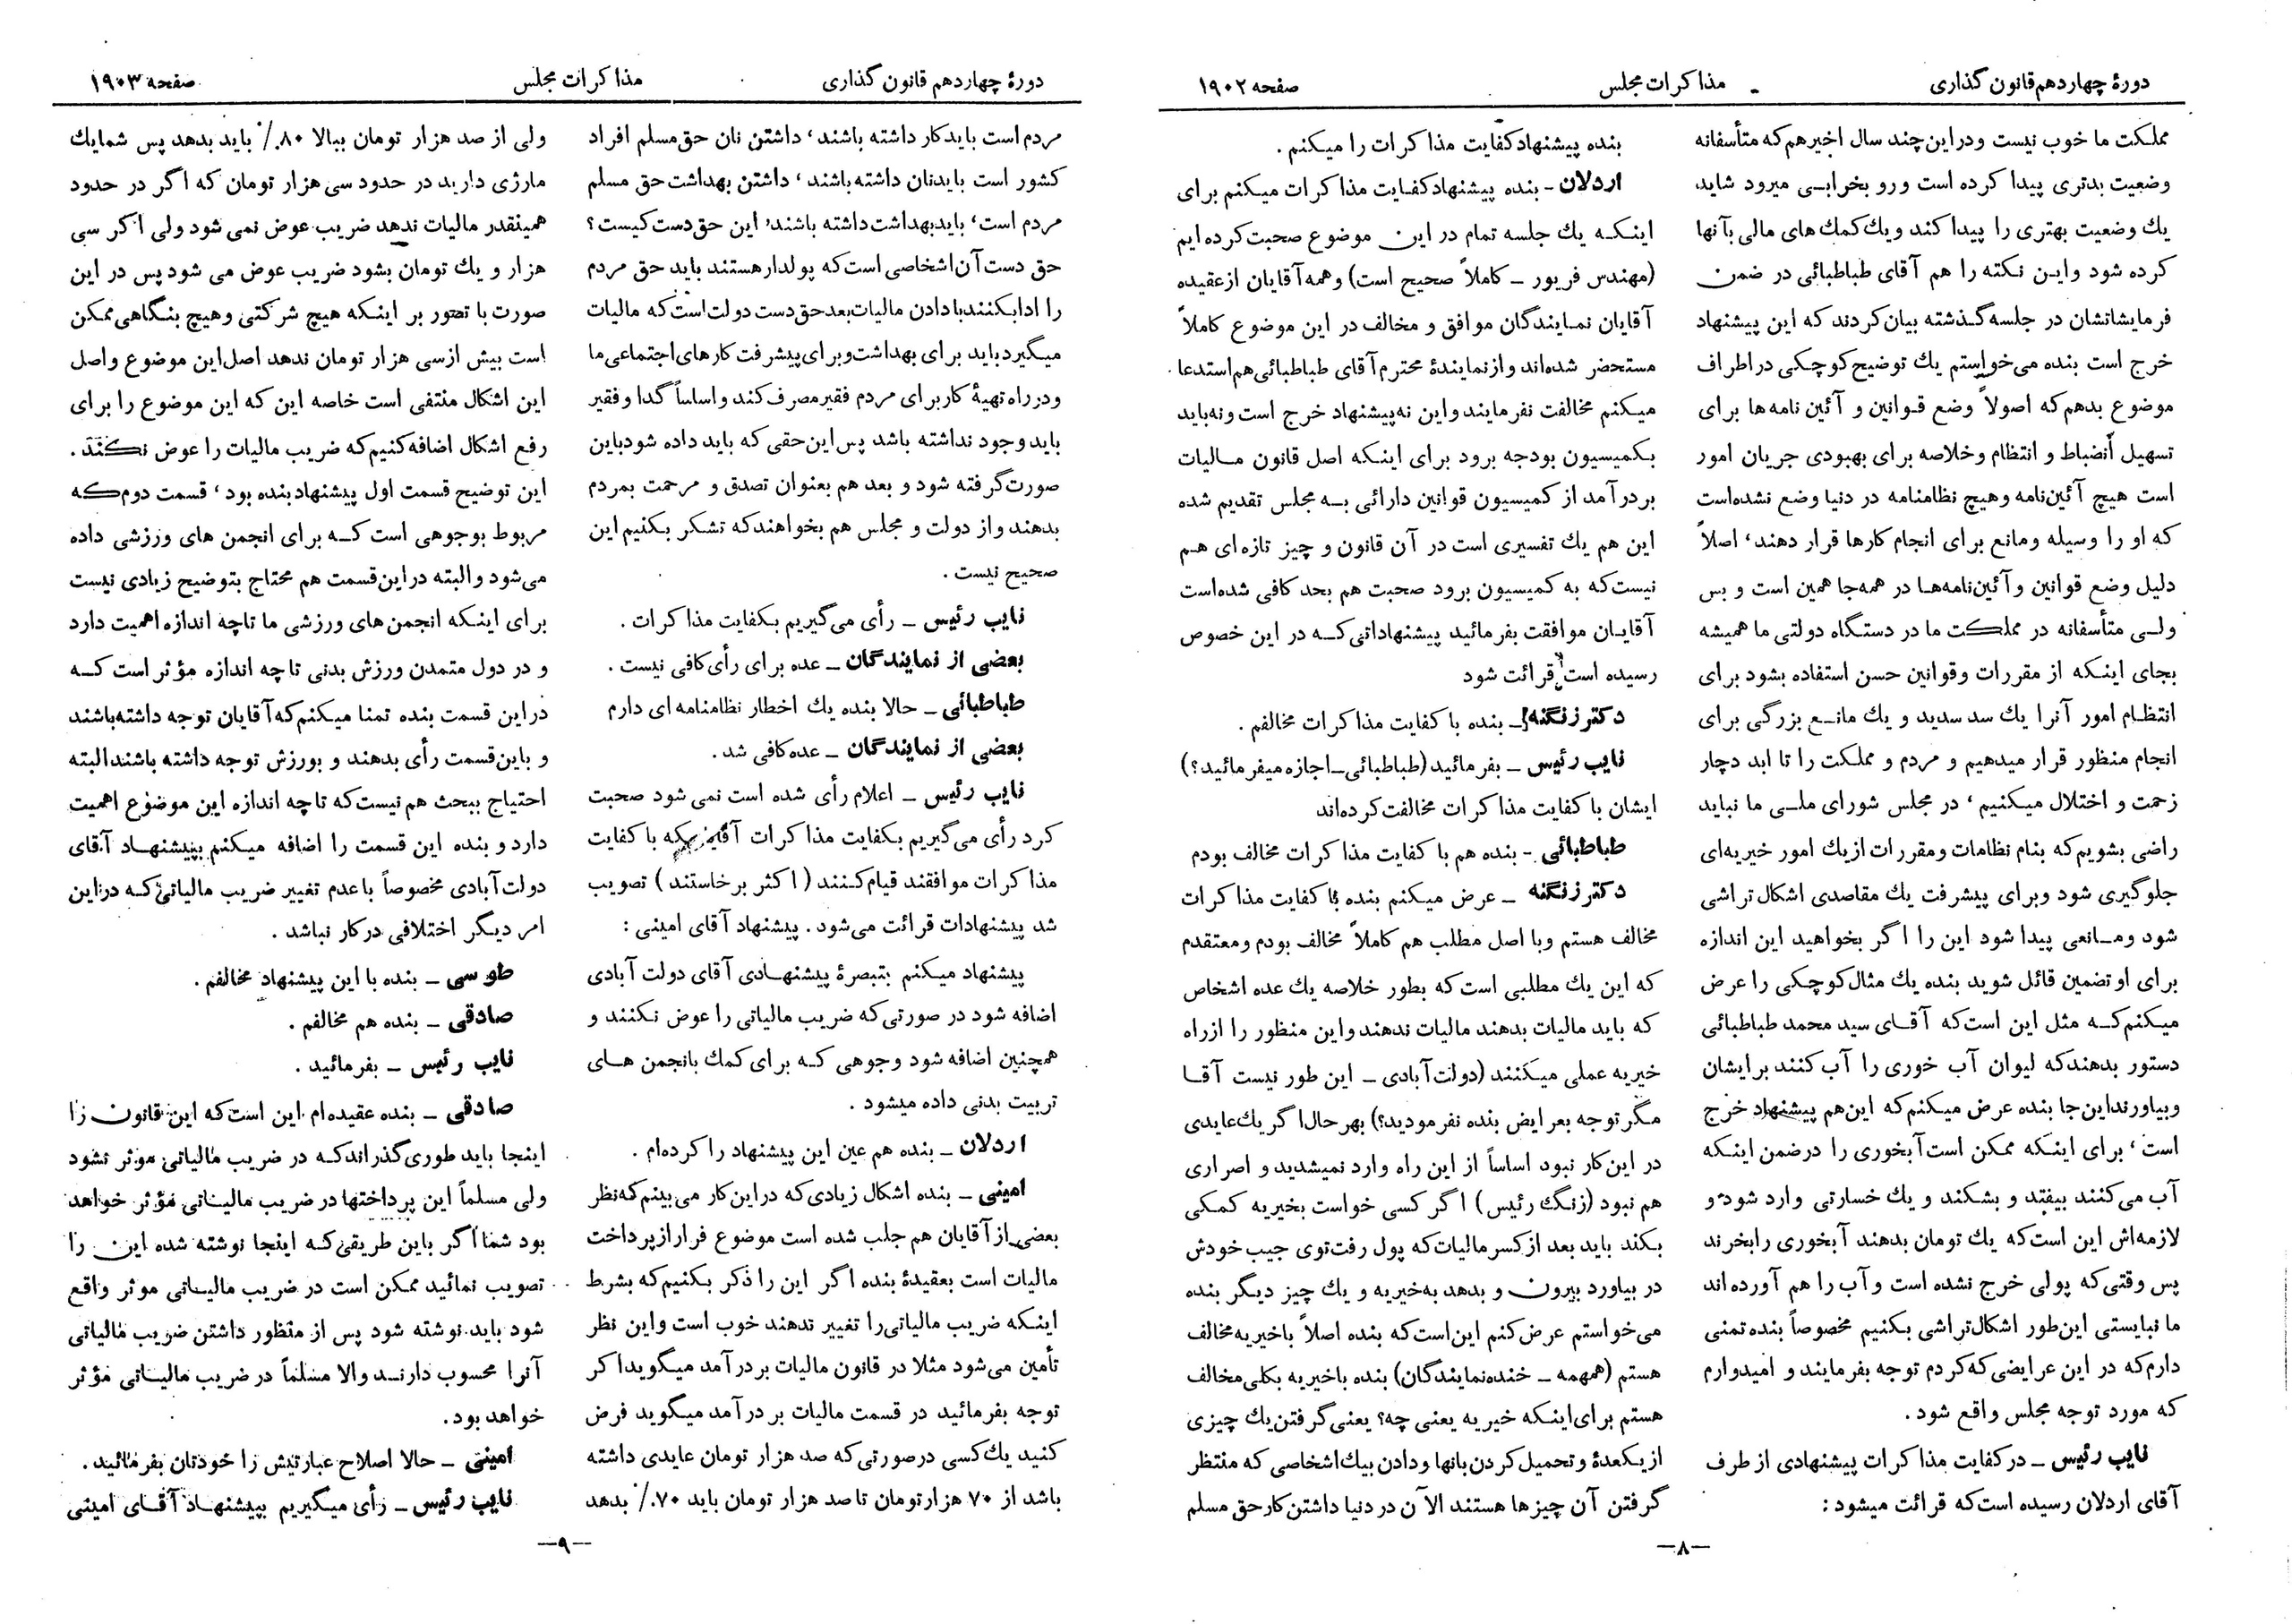 دورۀ چهاردهم قانون گذاری
مذاکرات مجلس
صفحه ۱۹۰۲
مملکت ما خوب نیست ودراین چند سال اخیرهم که متأسفانه
وضعیت بدتری پیدا کرده است ورو بخرابـی میرود شاید
یك وضعیت بهتری را پیدا کند ویك کمك های مالی بآنها
کرده شود وایـن نکته را هم آقای طباطبائی در ضمن
فرمایشاتشان در جلسه گـذشته بیان کردند که این پیشنهاد
خرج است بنده می خواستم یك توضیح کوچکی دراطراف
موضوع بدهم که اصولاً وضع قـوانین و آئین نامه ها برای
تسهیل أنضباط و انتظام وخلاصه برای بهبودی جریان امور
است هیچ آئین نامه وهیچ نظامنامه در دنیا وضع نشده است
که او را وسیله ومانع برای انجام کارها قرار دهند، اصلاً
دلیل وضع قوانین و آئین نامه هـا در همه جا همین است و بس
ولـی متأسفانه در مملکت ما در دستگاه دولتی ما همیشه
بجای اینکه از مقررات وقوانین حسن استفاده بشود برای
انتظـام امور آنرا یك سد سدید و یك مانـع بزرگی برای
انجام منظور قرار میدهیم و مردم و مملکت را تا ابد دچار
زحمت و اختلال میکنیم، در مجلس شورای ملـی ما نباید
راضی بشویم که بنام نظامات ومقررات ازیك امور خیریه‌ای
جلوگیری شود وبرای پیشرفت یك مقاصدی اشکال تراشی
شود ومـانعی پیدا شود این را اگر بخواهید این اندازه
برای او تضمین قائل شوید بنده یك مثال کوچکی را عرض
میکنم کـه مثل این است که آقـای سید محمد طباطبائی
دستور بدهند که لیوان آب خوری را آب کنند برایشان
وبیاورنداین جا بنده عرض میکنم که این هم پیشنهاد خرج
است، برای اینکه ممکن است آبخوری را درضمن اینکه
آب می کنند بیفتد و بشکند و یك خسارتی وارد شود و
لازمه‌اش این است که یك تومان بدهند آبخوری رابخرند
پس وقتی که پولی خرج نشده است وآب را هم آورده اند
ما نبایستی این طور اشکال تراشی بکنیم مخصوصاً بنده تمنی
دارم که در این عرایضی که کردم توجه بفرمایند و امیدوارم
که مورد توجه مجلس واقع شود.
نایب رئیس ــ درکفایت مذاکرات پیشنهادی از طرف
آقای اردلان رسیده است که قرائت میشود:
بنده پیشنهاد کفایت مذاکرات را میکنم.
اردلان - بنده پیشنهاد کفایت مذاکرات میکنم برای
اینکـه یك جلسه تمام در این موضوع صحبت کرده ایم
(مهندس فریور ــ کاملاً صحیح است) وهمه آقایان ازعقیده
آقایان نمـایندگان موافق و مخالف در این موضوع کاملاً
مستحضر شده‌اند و ازنمایندۀ محترم آقای طباطبائی هم استدعا
میکنم مخالفت نفرمایند واین نه پیشنهاد خرج است ونه باید
بکمیسیون بودجه برود برای اینکه اصل قانون مـالیات
بردرآمد از کمیسیون قوانین دارائی بـه مجلس تقدیم شده
این هم یك تفسیری است در آن قانون و چیز تازه ای هـم
نیست که به کمیسیون برود صحبت هم بحد کافی شده است
آقایـان موافقت بفرمائید پیشنهاداتی کـه در این خصوص
رسیده است قرائت شود
دکتر زنگنه ــ بنده با کفایت مذاکرات مخالفم.
نایب رئیس ــ بفرمائید (طباطبائی ــ اجازه میفرمائید؟)
ایشان با کفایت مذاکرات مخالفت کرده‌اند
طباطبائی - بنده هم با کفایت مذاکرات مخالف بودم
دکتر زنگنه ــ عرض میکنم بنده با کفایت مذاکرات
مخالف هستم وبا اصل مطلب هم کاملاً مخالف بودم ومعتقدم
که این یك مطلبی است که بطور خلاصه یك عده اشخاص
که باید مالیات بدهند مالیات ندهند واین منظور را ازراه
خیریه عملی میکنند (دولت آبادی ــ این طور نیست آقـا
مگر توجه بعرایض بنده نفرمودید؟) بهر حال اگر یك عایدی
در این کار نبود اساساً از این راه وارد نمیشدید و اصراری
هم نبود (زنگ رئیس) اگر کسی خواست بخیریه کمکی
بکند باید بعد از کسر مالیات که پول رفت توی جیب خودش
در بیاورد بیرون و بدهد به خیریه و یك چیز دیگر بنده
می خواستم عرض کنم این است که بنده اصلاً باخیریه مخالف
هستم (همهمه ــ خنده نمایندگان) بنده باخیریه بکلی مخالف
هستم برای اینکه خیریه یعنی چه؟ یعنی گرفتن یك چیزی
از یکعدۀ و تحمیل کردن بانها ودادن بیك اشخاصی که منتظر
گرفتن آن چیزها هستند الآن در دنیا داشتن کار حق مسلم
—۸—
دورۀ چهاردهم قانون گذاری
مذاکرات مجلس
صفحه ۱۹۰۳
مردم است باید کار داشته باشند، داشتن نان حق مسلم افراد
کشور است باید نان داشته باشند، داشتن بهداشت حق مسلم
مردم است، باید بهداشت داشته باشند، این حق دست کیست؟
حق دست آن اشخاصی است که پولدار هستند باید حق مردم
را ادا بکنند بادادن مالیات بعد حق دست دولت است که مالیات
میگیرد باید برای بهداشت وبرای پیشرفت کارهای اجتماعی ما
ودرراه تهیۀ کار برای مردم فقیر مصرف کند و اساساً گدا وفقیر
باید وجود نداشته باشد پس این حقی که باید داده شود باین
صورت گرفته شود و بعد هم بعنوان تصدق و مرحمت بمردم
بدهند واز دولت و مجلس هم بخواهند که تشکر بکنیم این
صحیح نیست.
نایب رئیس ــ رأی می گیریم بکفایت مذاکرات.
بعضی از نمایندگان ــ عده برای رأی کافی نیست.
طباطبائی ــ حالا بنده یك اخطار نظامنامه ای دارم
بعضی از نمایندگان ــ عده کافی شد.
نایب رئیس ــ اعلام رأی شده است نمی شود صحبت
کرد رأی می گیریم بکفایت مذاکرات که با کفایت
مذاکرات موافقند قیام کـنند (اکثر برخاستند) تصویب
شد پیشنهادات قرائت می شود. پیشنهاد آقای امینی:
پیشنهاد میکنم بتبصرۀ پیشنهـادی آقای دولت آبادی
اضافه شود در صورتی که ضریب مالیاتی را عوض نکنند و
همچنین اضافه شود وجوهی کـه برای کمك بانجمن هـای
تربیت بدنی داده میشود.
اردلان ــ بنده هم عین این پیشنهاد را کرده‌ام.
امینی ــ بنده اشکال زیادی که دراین کار می بینم که نظر
بعضی از آقایان هم جلب شده است موضوع فرار از پرداخت
مالیات است بعقیدۀ بنده اگر این را ذکر بکنیم که بشرط
اینکه ضریب مالیاتی را تغییر ندهند خوب است واین نظر
تأمین می شود مثلا در قانون مالیات بر درآمد میگوید اگر
توجه بفرمائید در قسمت مالیات بر درآمد میگوید فرض
کنید یك کسی درصورتی که صد هزار تومان عایدی داشته
باشد از ۷۰ هزار تومان تا صد هزار تومان باید ۷۰٪ بدهد
ولی از صد هزار تومان ببالا ۸۰٪ باید بدهد پس شمایك
مارژی دارید در حدود سی هزار تومان که اگر در حدود
همینقدر مالیات ندهد ضریب عوض نمی شود ولی اگر سی
هزار و یك تومان بشود ضریب عوض می شود پس در این
صورت با تصور بر اینکه هیچ شرکتی وهیچ بنگاهی ممکن
است بیش ازسی هزار تومان ندهد اصل این موضوع واصل
این اشکال منتفی است خاصه این که این موضوع را برای
رفع اشکال اضافه کنیم که ضریب مالیات را عوض نکند.
این توضیح قسمت اول پیشنهاد بنده بود، قسمت دوم که
مربوط بوجوهی است کـه برای انجمن های ورزشی داده
می شود والبته دراین قسمت هم محتاج بتوضیح زیادی نیست
برای اینکه انجمن های ورزشی ما تاچه اندازه اهمیت دارد
و در دول متمدن ورزش بدنی تا چه اندازه مؤثر است کـه
دراین قسمت بنده تمنا میکنم که آقایان توجه داشته باشند
و باین قسمت رأی بدهند و بورزش توجه داشته باشند البته
احتیاج ببحث هم نیست که تا چه اندازه این موضوع اهمیت
دارد و بنده این قسمت را اضافه میکنم بپیشنهـاد آقای
دولت آبادی مخصوصاً با عدم تغییر ضریب مالیاتی که دراین
امر دیگر اختلافی در کار نباشد.
طوسی ــ بنده با این پیشنهاد مخالفم.
صادقی ــ بنده هم مخالفم.
نایب رئیس ــ بفرمائید.
صادقی ــ بنده عقیده‌ام این است که این قانون را
اینجا باید طوری گذراند که در ضریب مالیاتی مؤثر نشود
ولی مسلماً این پرداختها در ضریب مالیـاتی مؤثر خواهد
بود شما اگر باین طریقی کـه اینجا نوشته شده این را
تصویب نمائید ممکن است در ضریب مالیـاتی موثر واقع
شود باید نوشته شود پس از منظور داشتن ضریب مالیاتی
آنرا محسوب دارنـد والا مسلماً در ضریب مالیـاتی مؤثر
خواهد بود.
امینی ــ حالا اصلاح عبارتیش را خودتان بفرمائید.
نایب رئیس ــ رأی میگیریم بپیشنهـاد آقـای امینی
—۹—